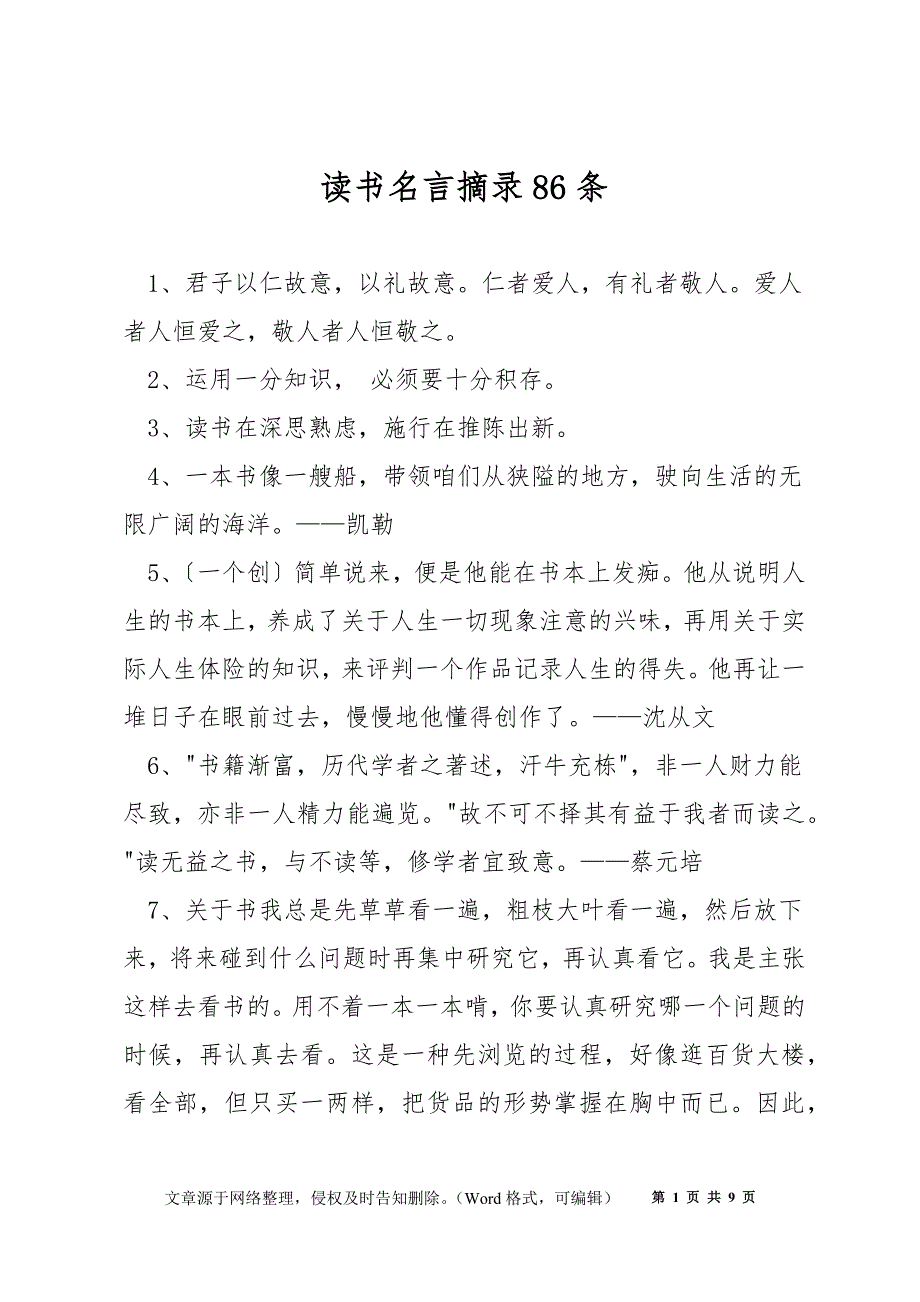 读书名言摘录 86 条
1、君子以仁故意，以礼故意。仁者爱人，有礼者敬人。爱人
者人恒爱之，敬人者人恒敬之。
2、运用一分知识， 必须要十分积存。
3、读书在深思熟虑，施行在推陈出新。
4、一本书像一艘船，带领咱们从狭隘的地方，驶向生活的无
限广阔的海洋。——凯勒
5、〔一个创〕简单说来，便是他能在书本上发痴。他从说明人
生的书本上，养成了关于人生一切现象注意的兴味，再用关于实
际人生体险的知识，来评判一个作品记录人生的得失。他再让一
堆日子在眼前过去，慢慢地他懂得创作了。——沈从文
6、"书籍渐富，历代学者之著述，汗牛充栋"，非一人财力能
尽致，亦非一人精力能遍览。"故不可不择其有益于我者而读之。
"读无益之书，与不读等，修学者宜致意。——蔡元培
7、关于书我总是先草草看一遍，粗枝大叶看一遍，然后放下
来，将来碰到什么问题时再集中研究它，再认真看它。我是主张
这样去看书的。用不着一本一本啃，你要认真研究哪一个问题的
时候，再认真去看。这是一种先浏览的过程，好像逛百货大楼，
看全部，但只买一两样，把货品的形势掌握在胸中而已。因此，
文章源于网络整理，侵权及时告知删除。（Word 格式，可编辑） 第 1 页 共 9 页